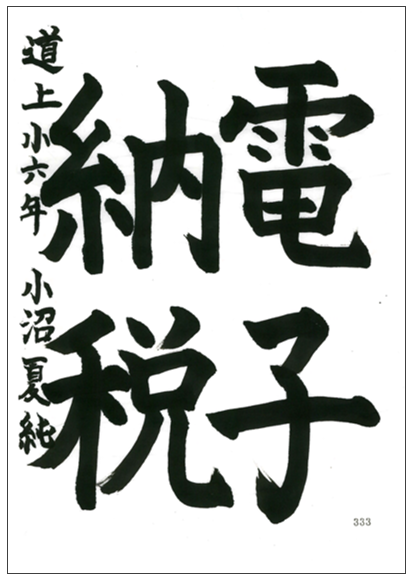 電子
納税
道上小六年 小沼夏純
333